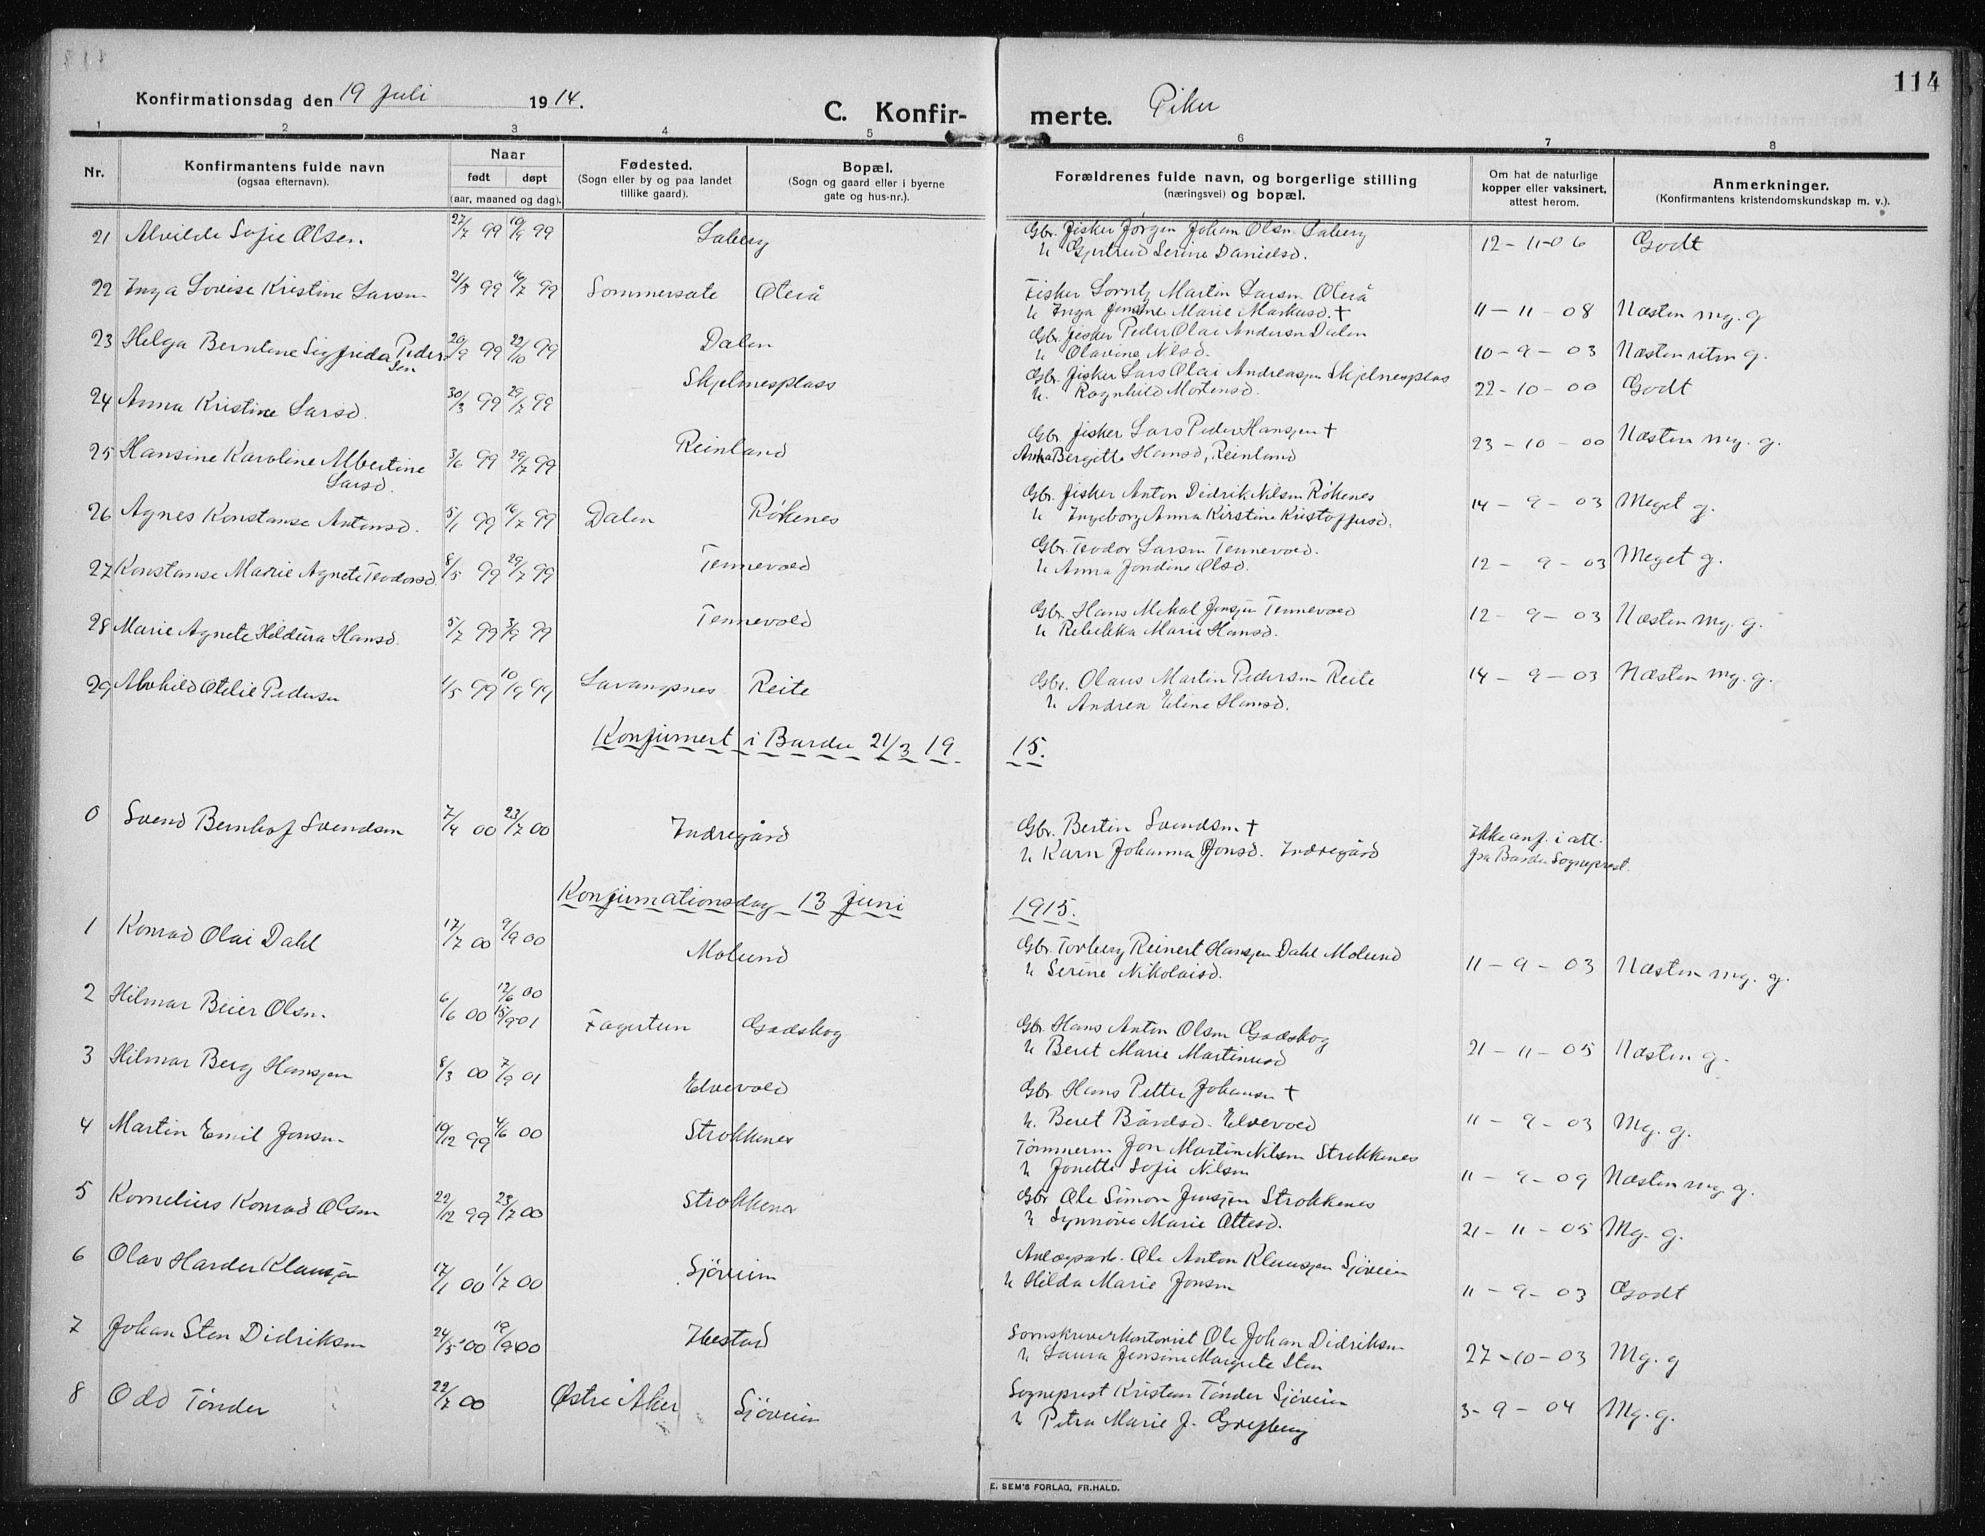 114
Konfirmationsdag den 19 Juli 1914.
C. Konfirmerte. Piker
1 2 3 4 5 6 7 8
Nr.
Konfirmantens fulde navn
(ogsaa efternavn).
Naar
født døpt
(aar, maaned og dag).
Fødested.
(Sogn eller by og paa landet
tillike gaard).
Bopæl.
(Sogn og gaard eller i byerne
gate og hus-nr.).
Forældrenes fulde navn, og borgerlige stilling
(næringsvei) og bopæl.
Om hat de naturlige
kopper eller vaksinert,
attest herom.
Anmerkninger.
(Konfirmantens kristendomskundskap m. v.).
21 Alvilde Sofie Olsen. 27/7 99 10/9 99 Saberg Gbr. fisker Jørgen Johan Olsn Saberg 12-11-06 Godt
u Gjertrud Serine Danielsd.
22 Inga Lovise Kristine Larsn 21/3 99 16/7 99 Sommersæte Oterå Fisker Lorntz Martin Larsn Oterå
u Inga Jensine Marie Markusd. + 11-11-08 Næsten mg. g
23 Helga Berntine Sigfrida Peder- 20/9 99 22/10 99 Dalen Gbr. fisker Peder Olai Andersn Dalen
sen u Olavine Nilsd. 10-9-03 Næsten g.
24 Anna Kristine Larsd. 30/3 99 29/7 99 Skjelnesplass Gbr. fisker Lars Olai Andreasjen Skjelnesplas
u. Ragnhild Mortensd. 22-10-00 Godt
25 Hansine Karoline Albertine 3/6 99 29/7 99 Reinland Gbr. fisker Lars Peder Hansjen + 23-10-00 Næsten mg. g.
Larsd. Anna Bergitte Hansd, Reinland
26 Agnes Konstanse Antonsd. 5/1 99 16/7 99 Dalen Røkenes Gbr. fisker Anton Didrik Nilsn Røkenes 14-9-03 Meget g.
u Ingeborg Anna Kirstine Kristoffersd.
27 Konstanse Marie Agnete Teodorsd. 8/5 99 29/7 99 Tennevold Gbr. Teodor Larsn Tennevold. 12-9-03 Meget g.
u Anna Jondine Olsd.
28 Marie Agnete Hildura Hansd. 5/7 99 3/9 99 Tennevold Gbr. Hans Mikal Jensjen Tennevold 12-9-03 Næsten mg. g.
u Rebekka Marie Hansd.
29 Alvhild Otelie Pedersn 1/5 99 10/9 99 Lavangsnes Reite Gbr. Olaus Martin Pedersn Reite 14-9-03 Næsten mg. g.
u Andrea Eline Hansd.
Konfirmert i Bardu 21/3 1915.
0 Svend Bernhof Svendsen 7/4 00 23/7 00 Indregård Gbr. Bertin Svendsn + Ikke anf. i att.
u Karn Johanna Jonsd. Indregård fra Bardu Sogneprest.
Konfirmationsdag 13 Juni 1915.
1 Konrad Olai Dahl 17/7 00 9/9 00 Molund Gbr. Torberg Reinert Hansjen Dahl Molund 11-9-03 Næsten mg. g.
u Serine Nikolaisd.
2 Hilmar Beier Olsn. 6/6 00 12/6 00 15/9 01 Fagertun Gadskog Gbr. Hans Anton Olsn Gadskog
u Beret Marie Martinusd 21-11-05 Næsten g.
3 Hilmar Berg Hansjen 8/3 00 7/9 01 Elvevold Gbr Hans Petter Johansn +
u. Beret Bårdsd. Elvevold 11-9-03 Mg. g.
4 Martin Emil Jonsn. 19/12 99 4/6 00 Strokkenes Tømmerm Jon Martin Nilsn Strokkenes
u Jonette Sofie Nilsn 11-9-09 Næsten mg. g.
5 Kornelius Konrad Olsen 22/12 99 23/7 00 Strokkenes Gbr Ole Simon Jensjen Strokkenes
u Synnøve Marie Ottesd. 21-11-05 Mg. g.
6 Olav Harder Klausjen 17/1 00 1/7 00 Sjøveien Anlægsarb. Ole Anton Klausjen Sjøveien
u Hilda Marie Jonsn 11-9-03 Godt
7 Johan Sten Didriksen 24/5 00 19/9 00 Ibestad Sornskriverkontorist Ole Johan Didriksn
u Laura Jensine Margrete Sten 27-10-03 Mg. g
8 Odd Tønder 22/7 00 Østre Aker Sjøveien Sogneprest Kristian Tønder Sjøveien 3-9-04 Mg. g.
u Petra Marie J.
E. SEM'S FORLAG, FR.HALD.